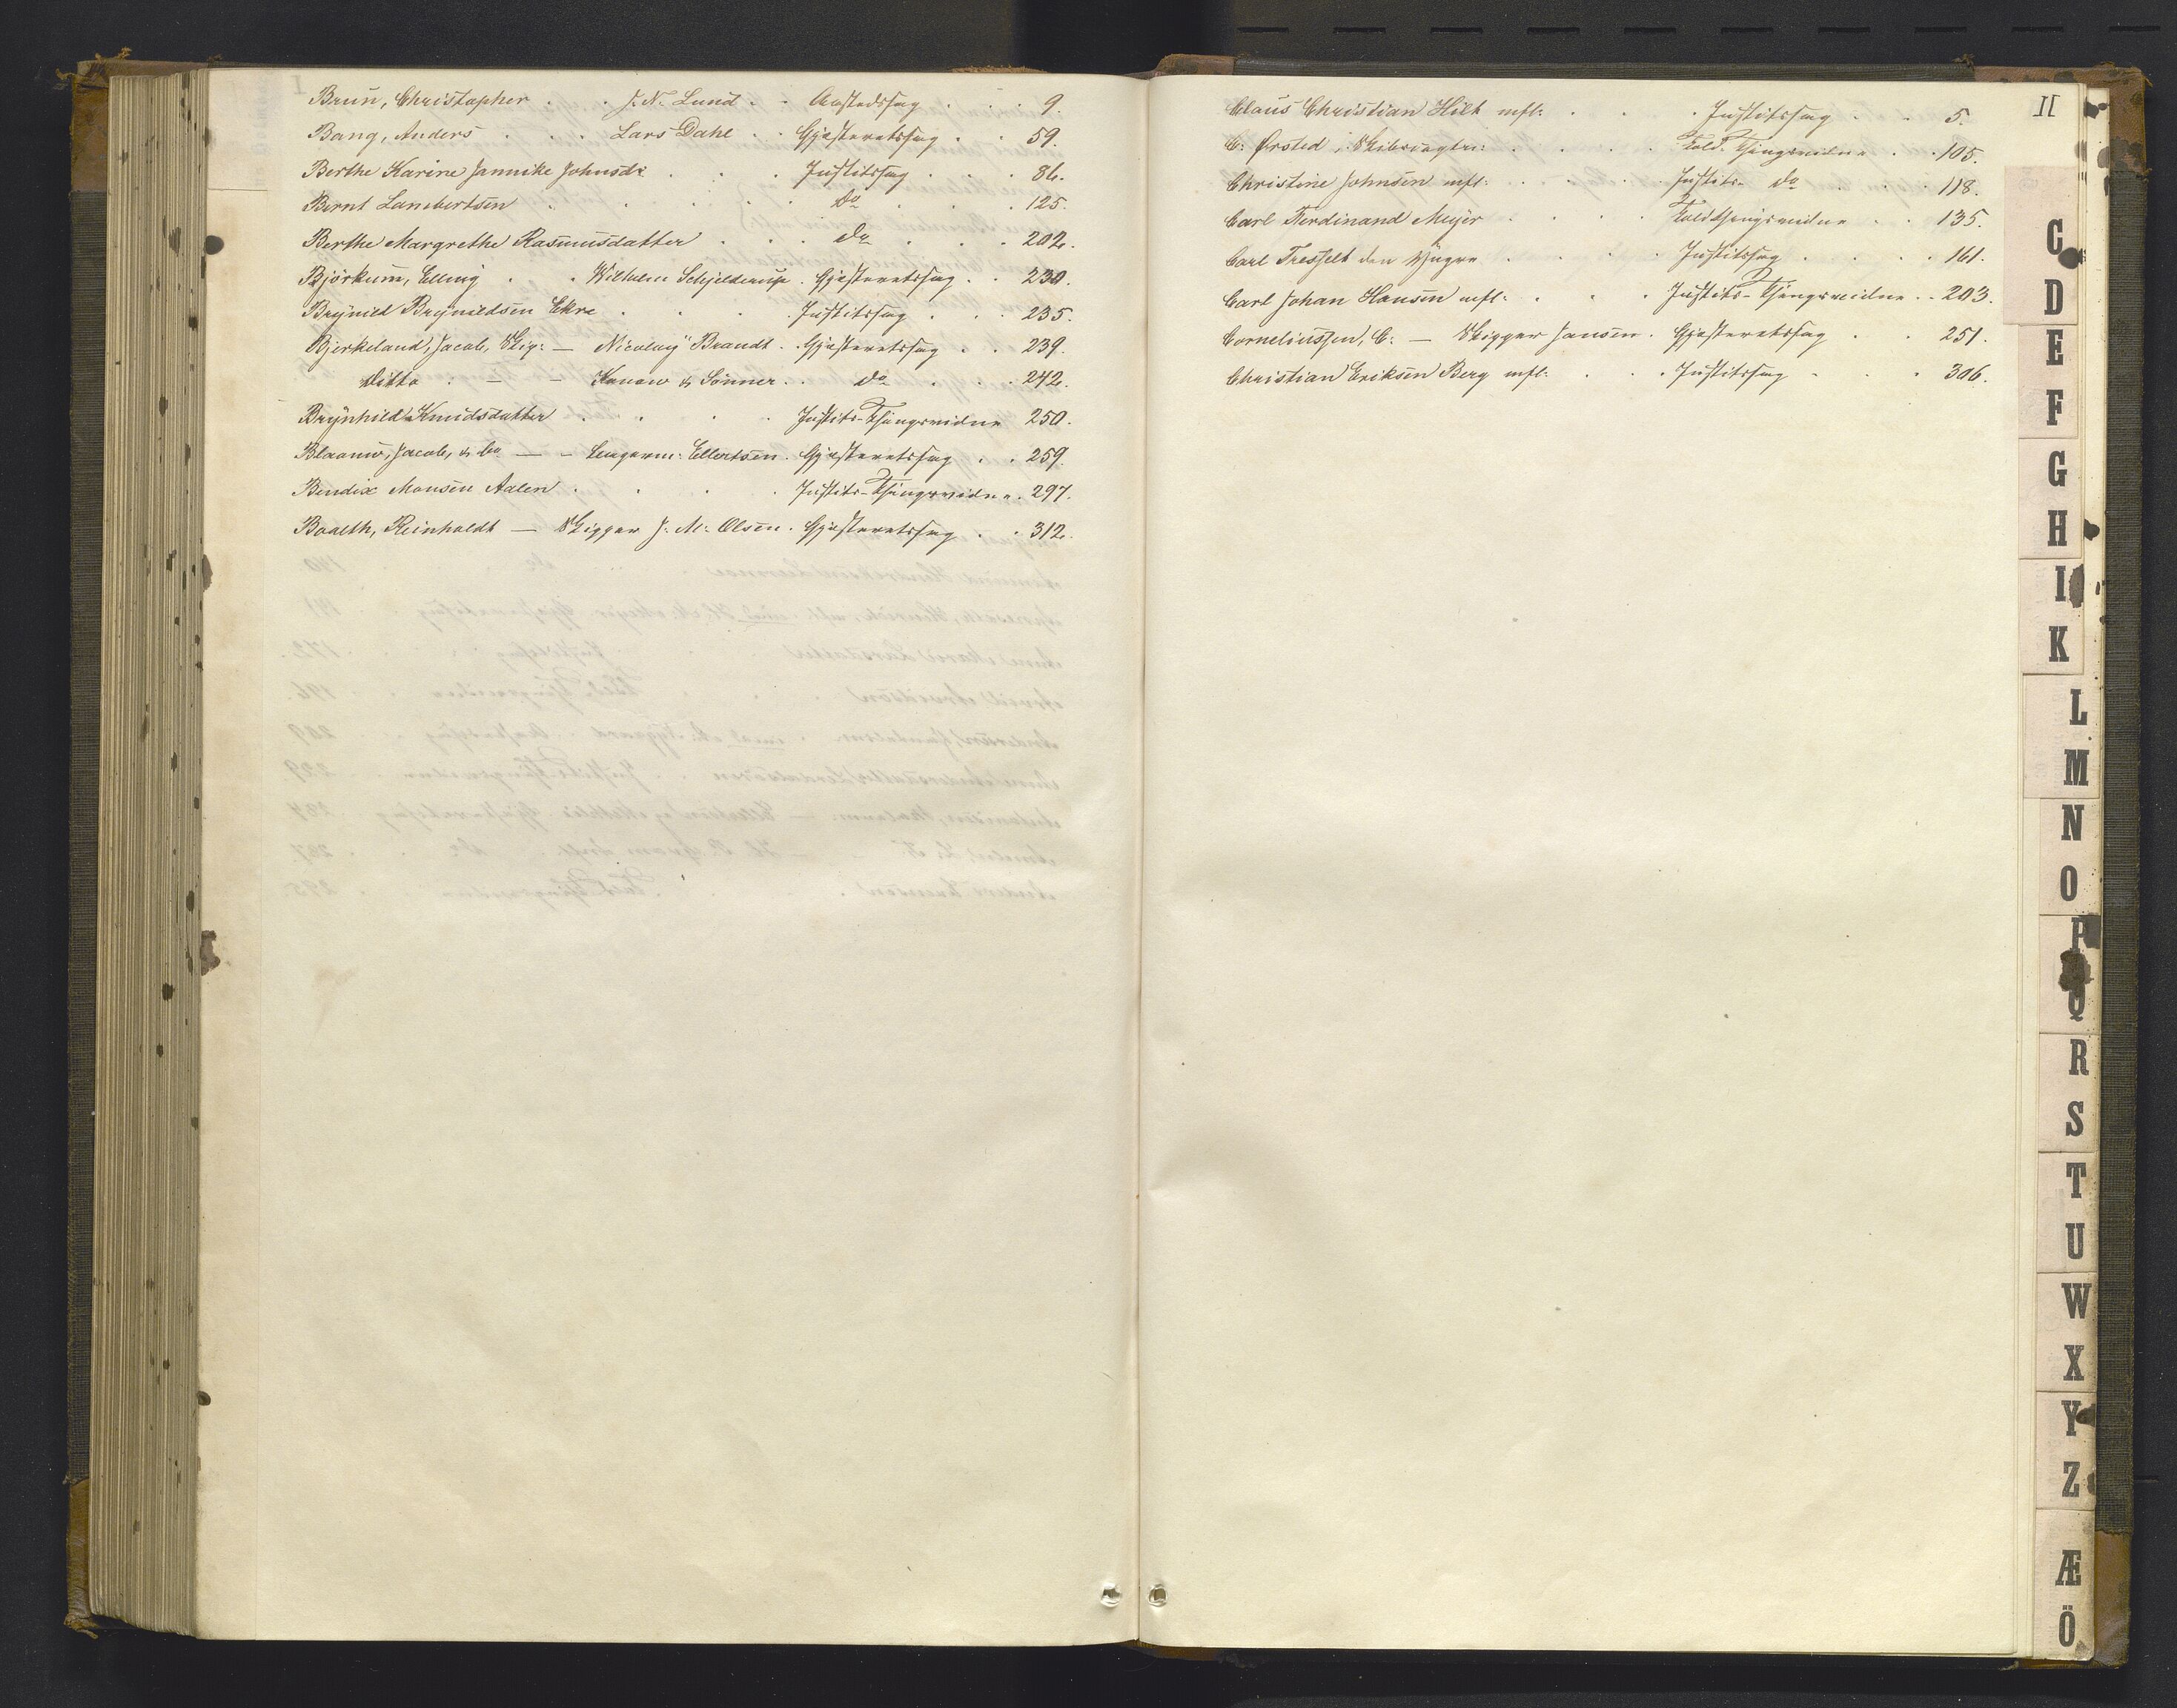 Brun, Christopher . . J. N. Lund . . Aastedssag . . . 9.
Bang, Anders . . . Lars Dahl . . Gjæsteretssag . . 59.
Berthe Karine Jannike Johnsdr . . . Justitssag . . . 86.
Bernt Lambertsen . . . . . do . . . 125.
Berthe Margrethe Rasmusdatter . . . do . . . 202.
Björkum, Elling . . Wilhelm Schjelderup . Gjæsteretssag . . 230.
Brynild Brynildsen Ekre . . . . Justitssag . . . 235.
Bjerkeland, Jacob, Skip: — Nicolay Brandt . Gjæsteretssag . . 239.
Ditto . — — Konow & Sönner . . do . . . 242.
Brynhild Knudsdatter . . . . Justits-Thingsvidne 250.
Blaauw, Jacob, & Co — — Ellertsen . Gjæsteretssag . . 259.
Bendix Monsen Aalen . . . . Justits-Thingsvidne . 297.
Baalth, Reinholdt — Skipper J. M. Olsen . Gjæsteretssag . . 312.
II
Claus Christian Hilt mfl: . . . Justitssag . . 5.
C. Ørsted, . . . . Told-Thingsvidne . . 105.
Christine Johnsen mfl: . . . . Justits- do . . . 118.
Carl Ferdinand Meyer . . . . Toldthingsvidne . . 135.
Carl Tresselt den Yngre . . . . Justitssag . . . . 161.
Carl Johan Hansen mfl: . . . Justits-Thingsvidne . . 203.
Corneliussen, C. — Skipper Jansen . Gjæsteretssag . . 251.
Christian Eriksen Berg mfl: . . . Justitssag . . . 306.
C
D
E
F
G
H
I
K
L
M
N
O
P
Q
R
S
T
U
W
X
Y
Z
Æ
Ö